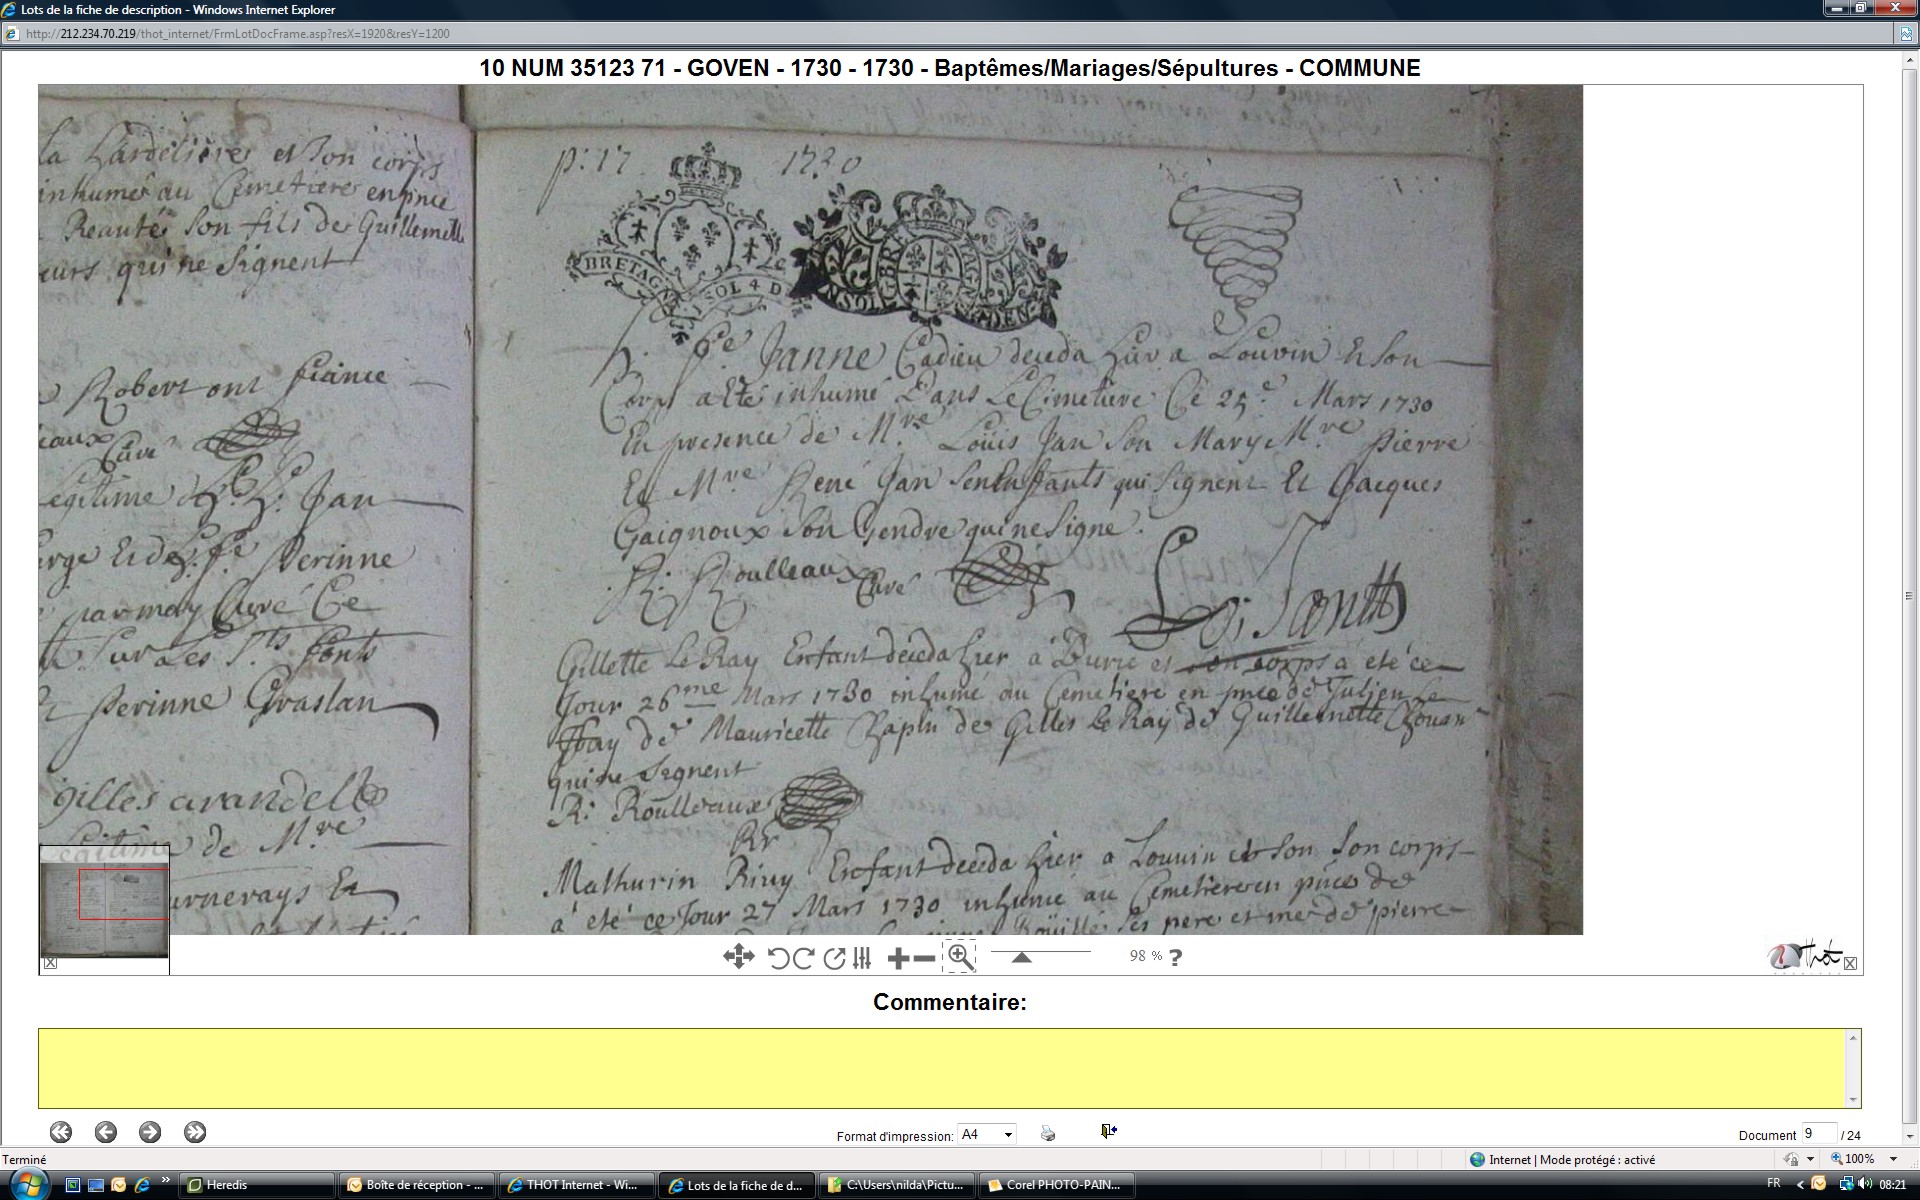 Lots de la fiche de description - Windows Internet Explorer
http://212.234.70.219/thot_internet/FrmLotDocFrame.asp?resX=1920&resY=1200
10 NUM 35123 71 - GOVEN - 1730 - 1730 - Baptêmes/Mariages/Sépultures - COMMUNE
la hardelieres et son corps
inhumé au Cemetiere en pnce
Reauté son fils de Guillemette
eurs qui ne Signent
Robert ont fiance
eaux Curé
legitime Jan
Perinne
par moy Curé Ce
Sur Les Sts fonts
Perinne Graslan
gilles arandelle
Legitime de Mre
urnerays Et
p: 17 1730
BRETAGNE SOL 4 D
UN SOL BRETAGNE DEN
h. fe Janne Cadieu deceda hier a Louvin Et Son
Corps a Eté inhumé Dans Le Cimetiere Ce 25e Mars 1730
En presence de Mre Louis Jan Son Mary Mre Pierre
Et Mre René Jan Sen Enffants qui Signent Et Jacques
Gaignoux Son Gendre qui ne Signe.
R. Roulleaux Curé
Gillette Le Ray Enfant deceda hier à et son corps a été ce
Jour 26me Mars 1730 inhumé au Cemetiere en pnce de Julien Le
Ray de Mauricette Chapln de Gilles Le Ray de Guillemette Chouan
qui ne Signent
R: Roulleaux
Rr
Mathurin Enfant deceda hier a Louvin et son Son corps
a été ce Jour 27 Mars 1730 inhumé au Cemetiere en pnce de
ses pere et mere de pierre
98 % ?
Thot
Commentaire:
Format d'impression: A4
Document 9 / 24
Terminé
Internet | Mode protégé : activé
100%
Heredis
Boîte de réception - ...
THOT Internet - Wi...
Lots de la fiche de d...
C:\Users\nilda\Pictu...
Corel PHOTO-PAIN...
FR
08:21